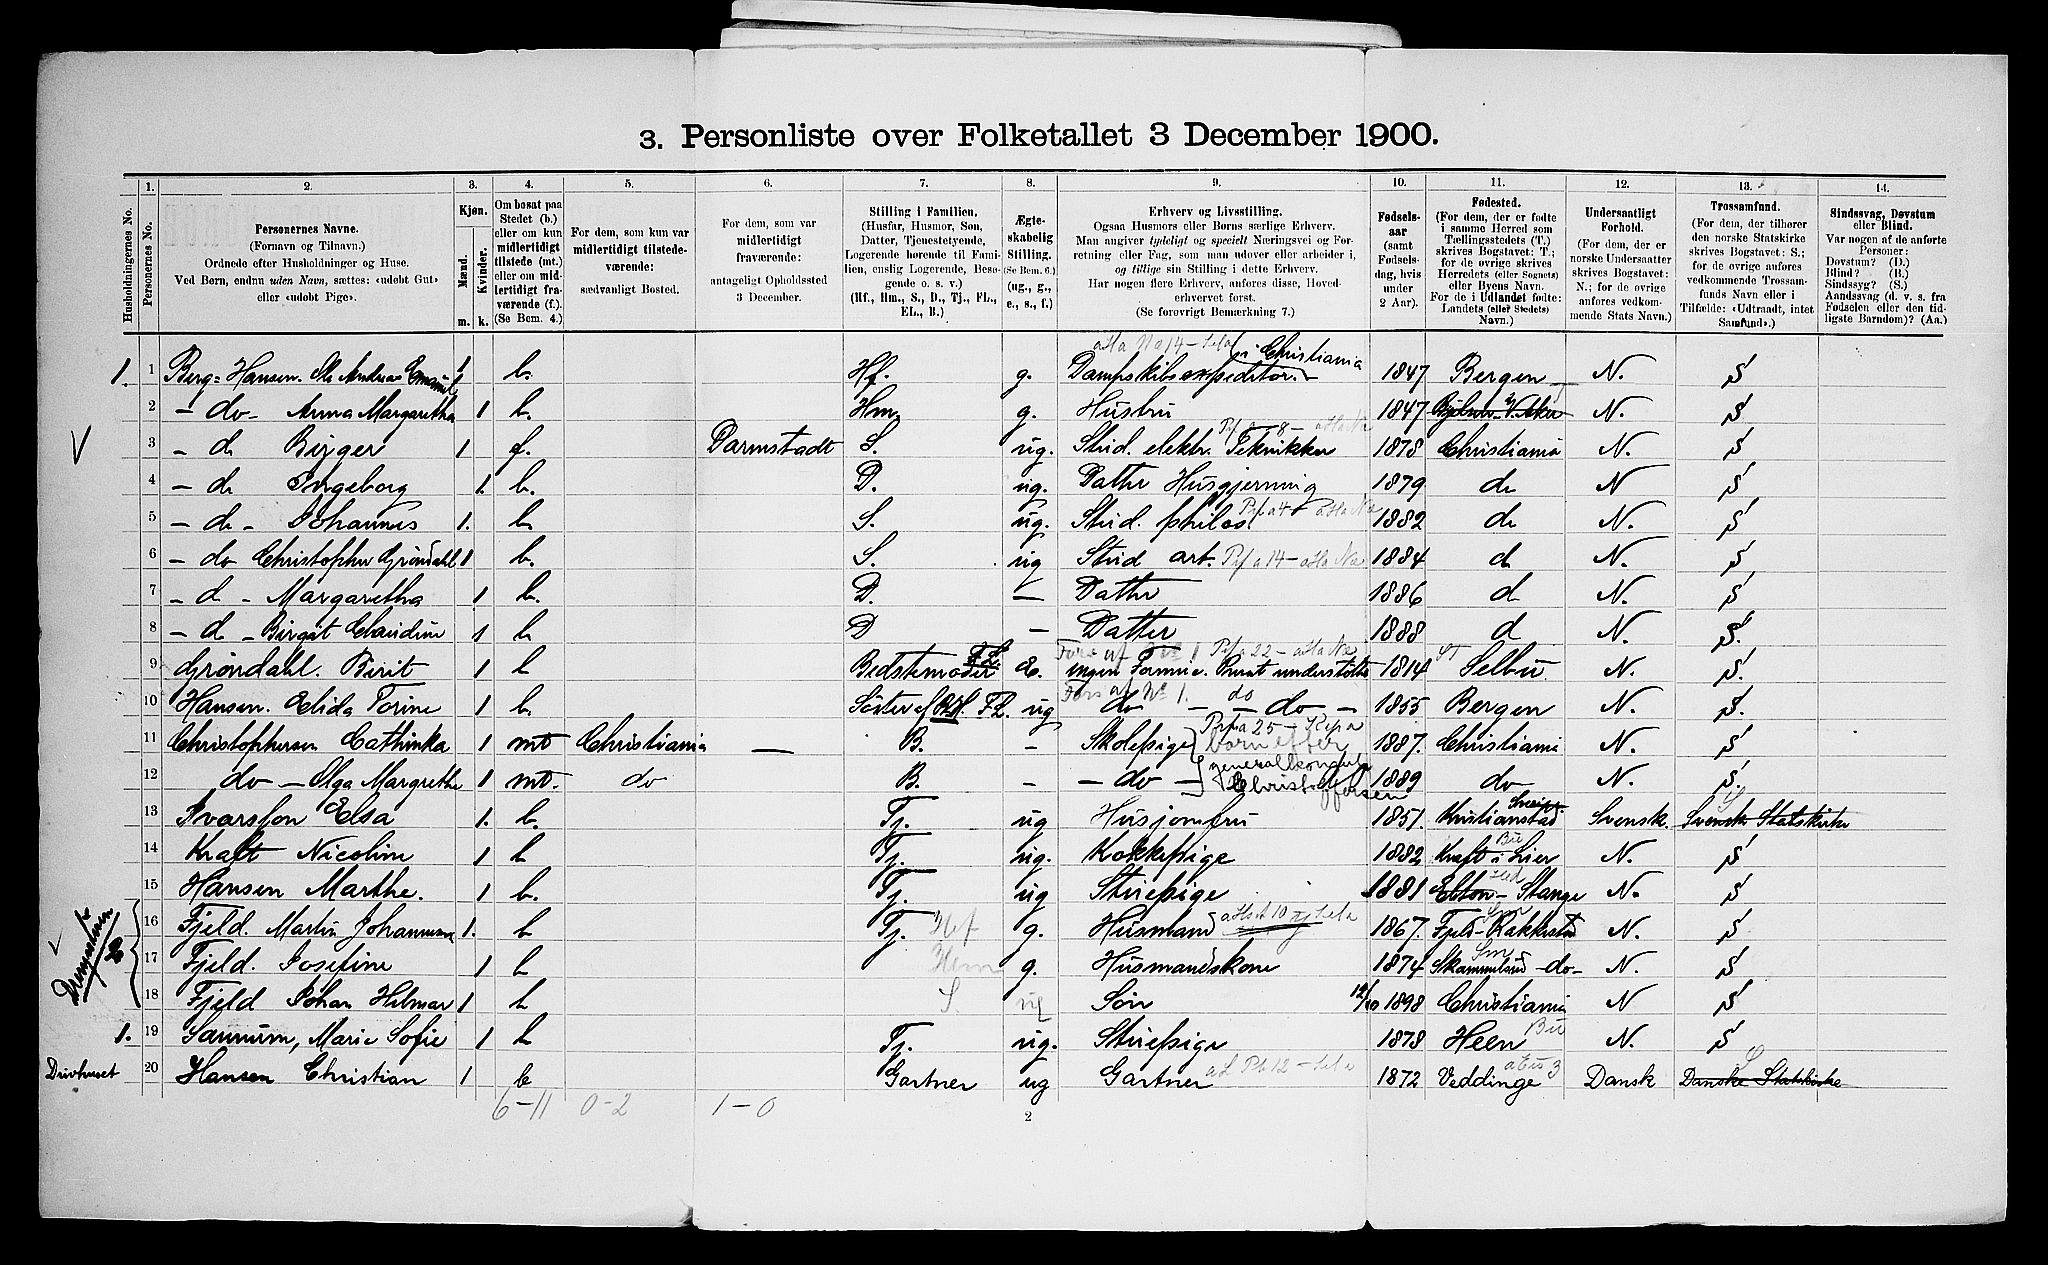 3. Personliste over Folketallet 3 December 1900.
1. 2. 3. 4. 5. 6. 7. 8. 9. 10. 11. 12. 13. 14.
Husholdningernes No.
Personernes No.
Personernes Navne.
(Fornavn og Tilnavn.)
Ordnede efter Husholdninger og Huse.
Ved Børn, endnu uden Navn, sættes: «udøbt Gut»
eller «udøbt Pige».
Kjøn.
Mænd.
Kvinder.
m. k.
Om bosat paa
Stedet (b.)
eller om kun
midlertidigt
tilstede (mt.)
eller om mid-
lertidigt fra-
værende (f.).
(Se Bem. 4.)
For dem, som kun var
midlertidigt tilstede-
værende:
sædvanligt Bosted.
For dem, som var
midlertidigt
fraværende:
antageligt Opholdssted
3 December.
Stilling i Familien.
(Husfar, Husmor, Søn,
Datter, Tjenestetyende,
Logerende hørende til Fami-
lien, enslig Logerende, Besø-
gende o. s. v.)
(Hf., Hm., S., D., Tj., FL.,
EL., B.)
Ægte-
skabelig
Stilling.
(Se Bem. 6.)
(ug., g.,
e., s., f.)
Erhverv og Livsstilling.
Ogsaa Husmors eller Børns særlige Erhverv.
Man angiver tydeligt og specielt Næringsvei og For-
retning eller Fag, som man udover eller arbeider i,
og tillige sin Stilling i dette Erhverv.
Har nogen flere Erhverv, anføres disse, Hoved-
erhvervet først.
(Se forøvrigt Bemærkning 7.)
Fødsels-
aar
(samt
Fødsels-
dag, hvis
under
2 Aar).
Fødested.
(For dem, der er fødte
i samme Herred som
Tællingsstedets (T.)
skrives Bogstavet: T.;
for de øvrige skrives
Herredets (eller Sognets)
eller Byens Navn.
For de i Udlandet fødte:
Landets (eller Stedets)
Navn.)
Undersaatligt
Forhold.
(For dem, der er
norske Undersaatter
skrives Bogstavet:
N.; for de øvrige
anføres vedkom-
mende Stats Navn.)
Trossamfund.
(For dem, der tilhører
den norske Statskirke
skrives Bogstavet: S.;
for de øvrige anføres
vedkommende Trossam-
funds Navn eller i
Tilfælde: «Udtraadt, intet
Samfund».)
Sindssvag, Døvstum
eller Blind.
Var nogen af de anførte
Personer:
Døvstum? (D.)
Blind? (B.)
Sindssyg? (S.)
Aandssvag (d. v. s. fra
Fødselen eller den tid-
ligste Barndom)? (Aa.)
i Christiania
1. 1 Berg=Hansen. Ole Andreas Emanuel 1. b. Hf. g. Dampskibsexpeditør 1847 Bergen N. S
2 - do - Anna Margaretha 1 b. Hm g. Hustru 1847 V. Aker N. S
3 - d Birger 1 f. Darmstadt S. ug. Stud. elektr. Teknikker 1878 Christiania N. S
4 - d Ingeborg 1. b. D. ug. Datter Husgjerning 1879 d N S
5 - d - Johannes 1. b. S. ug. Stud. philos 1882 d N. S
6 - do Christopher Gröndahl 1 b. S. ug Stud art. 1884 d N. S
7 - d - Margaretha 1 b. D. - Datter 1886 d N. S
8 - d - Birgit Claudine 1 b D - Datter 1888 d N. S.
9 Gröndahl. Birit 1 b Bedstemoder FL. E. ingen Formue. Privat understöttes 1814 Selbu N. S.
10 Hansen. Elida Torine 1 b. Söster af Hf. FL. ug do - do - 1855 Bergen N. S.
11 Christophersen Cathinka 1 mt Christiania - B. - Skolepige 1887. Christiania N. S.
børn efter
generalkonsul
Christoffersen
12 do - Olga Margrethe 1 mt. do B. - - do - 1889 do N. S.
13 Ivarsson Elsa 1. b. Tj. ug Husjomfru 1851. Kristianstad Sverige Svensk. Svensk Statskirke
14 Kraft Nicoline 1 b Tj. ug. Kokkepige 1882 Kraft i Lier Bu N. S
15 Hansen Marthe. 1 b. Tj. ug Stuepige 1881 Elton - Stange Hed N. S
16 Fjeld. Martin Johannesen 1. b Tj. Hf g. Husmand 1867. Fjeld - Rakkestad Sm N. S
17 Fjeld. Josefine 1 b Hm g. Husmandskone 1874 Skammelsrud - do - Sm N. S
18 Fjeld Johan Hilmar 1 b S. ug Sön 12/10 1898 Christiania N S
1. 19 Sannum, Marie Sofie 1 b Tj. ug. Stuepige 1878 Heen Bu N. S
Drivhuset 20 Hansen Christian 1 b Gartner ug Gartner 1872 Veddinge Dansk Danske Statskirke
6-11 0-2 1-0
2